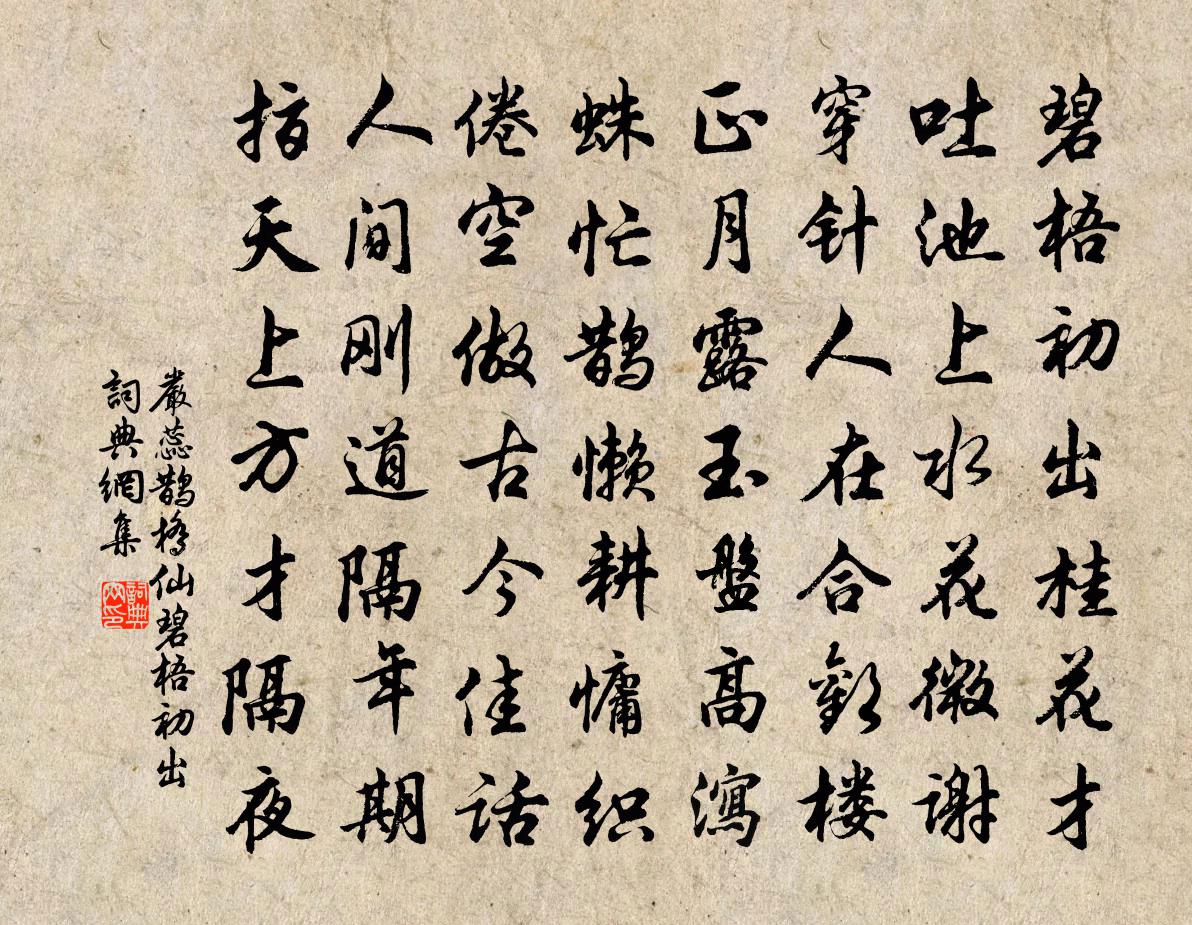 碧梧初出桂花才
吐池上水花微谢
穿针人在合歡楼
正月露玉盤高瀉
蛛忙鵲懒耕慵织
倦空做古今佳话
人间刚道隔年期
指天上方才隔夜
嚴蕊鵲橋仙碧梧初出
詞典網集
詞典网印